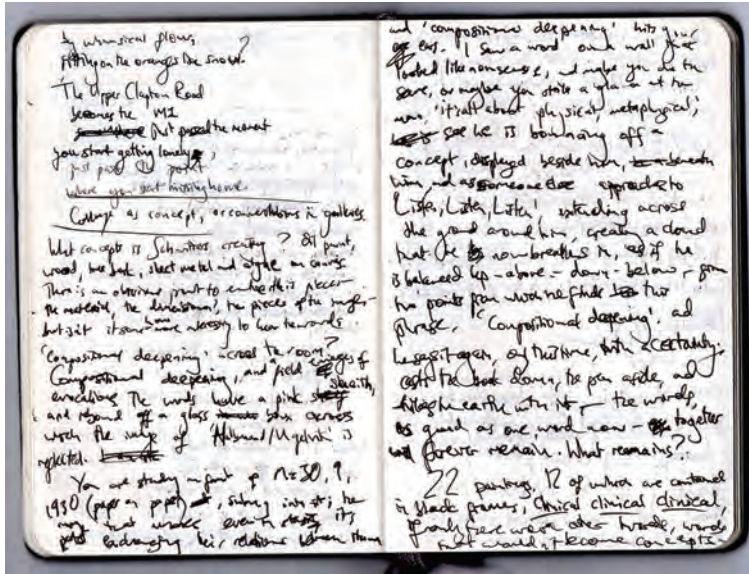 by whimsical flows,
sitting on the oranges like snow. ?
The Upper Clapton Road
becomes the M1
just past the moment
you start getting lonely,
just past the point
where you start missing home.
Collage as concept, or conversations in galleries.
What concepts is Schwitters creating? Oil paint,
wood, sheet metal and on canvas
There is an obvious point to enter this piece –
the materials, the dimensions, the pieces of the
but is it necessary to lean towards
'Compositional deepening' across the room?
Compositional deepening, and field images of
evocations The words have a pink
and rebound off a glass box across
which the image of is
reflected.
You are standing in front of Mz 30, 9,
1930 (paper on paper), into it; the
that even its
their relations between them
and 'compositional deepening' hits your
ears. I saw a word on a wall that
looked like nonsense, and maybe you are the
same, or maybe you strike a glance at the
man, 'it's all about physical, metaphysical',
see he is bouncing off a
concept, displayed beside him, beneath
him, and as someone else approaches to
'Listen, Listen, Listen' extending across
the ground around him, creating a cloud
that he now breathes in, as if he
is balanced up - above - down - below - from
two points from which he finds this
phrase, 'Compositional deepening', and
he says it again, only this time, with certainty.
casts the book down, the pen aside, and
the earth with it – the words,
as good as one word now – together
forever remain. What remains?
22 paintings, 12 of which are contained
in black frames, clinical clinical clinical,
if only there were other words, words
that wouldn't become concepts –